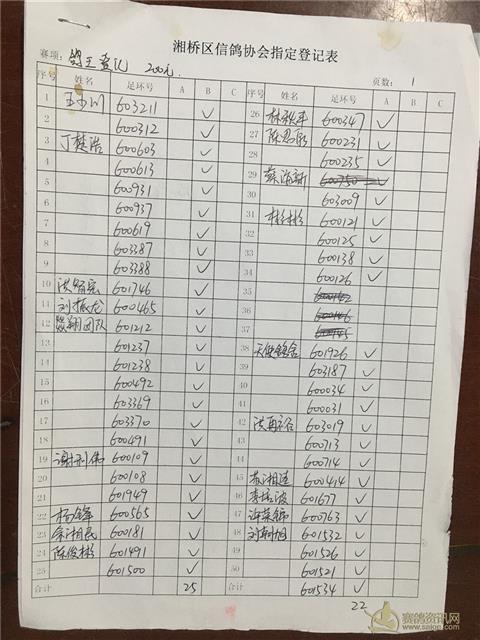 湘桥区信鸽协会指定登记表
赛项：鸽王登记 200元 页数：1
序号 姓名 足环号 A B C
1 603211 ✓
2 600312 ✓
3 丁楚浩 600603 ✓
4 600613 ✓
5 600931 ✓
6 600937 ✓
7 600619 ✓
8 603387 ✓
9 603388 ✓
10 601746 ✓
11 刘振龙 600465 ✓
12 翔团队 601212 ✓
13 601237 ✓
14 601238 ✓
15 600492 ✓
16 603369 ✓
17 603370 ✓
18 600491 ✓
19 谢利伟 600109 ✓
20 600108 ✓
21 601949 ✓
22 杨锋 600565 ✓
23 余湘民 600181 ✓
24 陈俊彬 601491 ✓
25 601500 ✓
合计 25
序号 姓名 足环号 A B C
26 600347 ✓
27 陈思 600231 ✓
28 600235 ✓
29 600350 ✓
30 603009 ✓
31 600121 ✓
32 600125 ✓
33 600138 ✓
34 600126 ✓
35
36
37
38 601926 ✓
39 603187 ✓
40 600034 ✓
41 600031 ✓
42 603019 ✓
43 600713 ✓
44 600714 ✓
45 苏湘连 600414 ✓
46 李培波 601677 ✓
47 600763 ✓
48 601532 ✓
49 601526 ✓
50 601521 ✓
合计 601534 ✓
22
赛鸽资讯网
www.saige.com